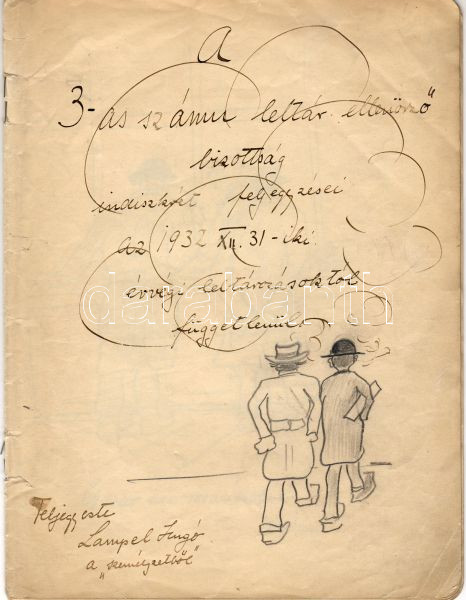 A
3-as számu leltár ellenörző
bizottság
indiszkrét feljegyzései
az 1932 XII. 31-iki
évvégi leltározásoktól
függetlenül.
darabanth
Feljegyezte
Lampel Hugó
a „személyzetből”